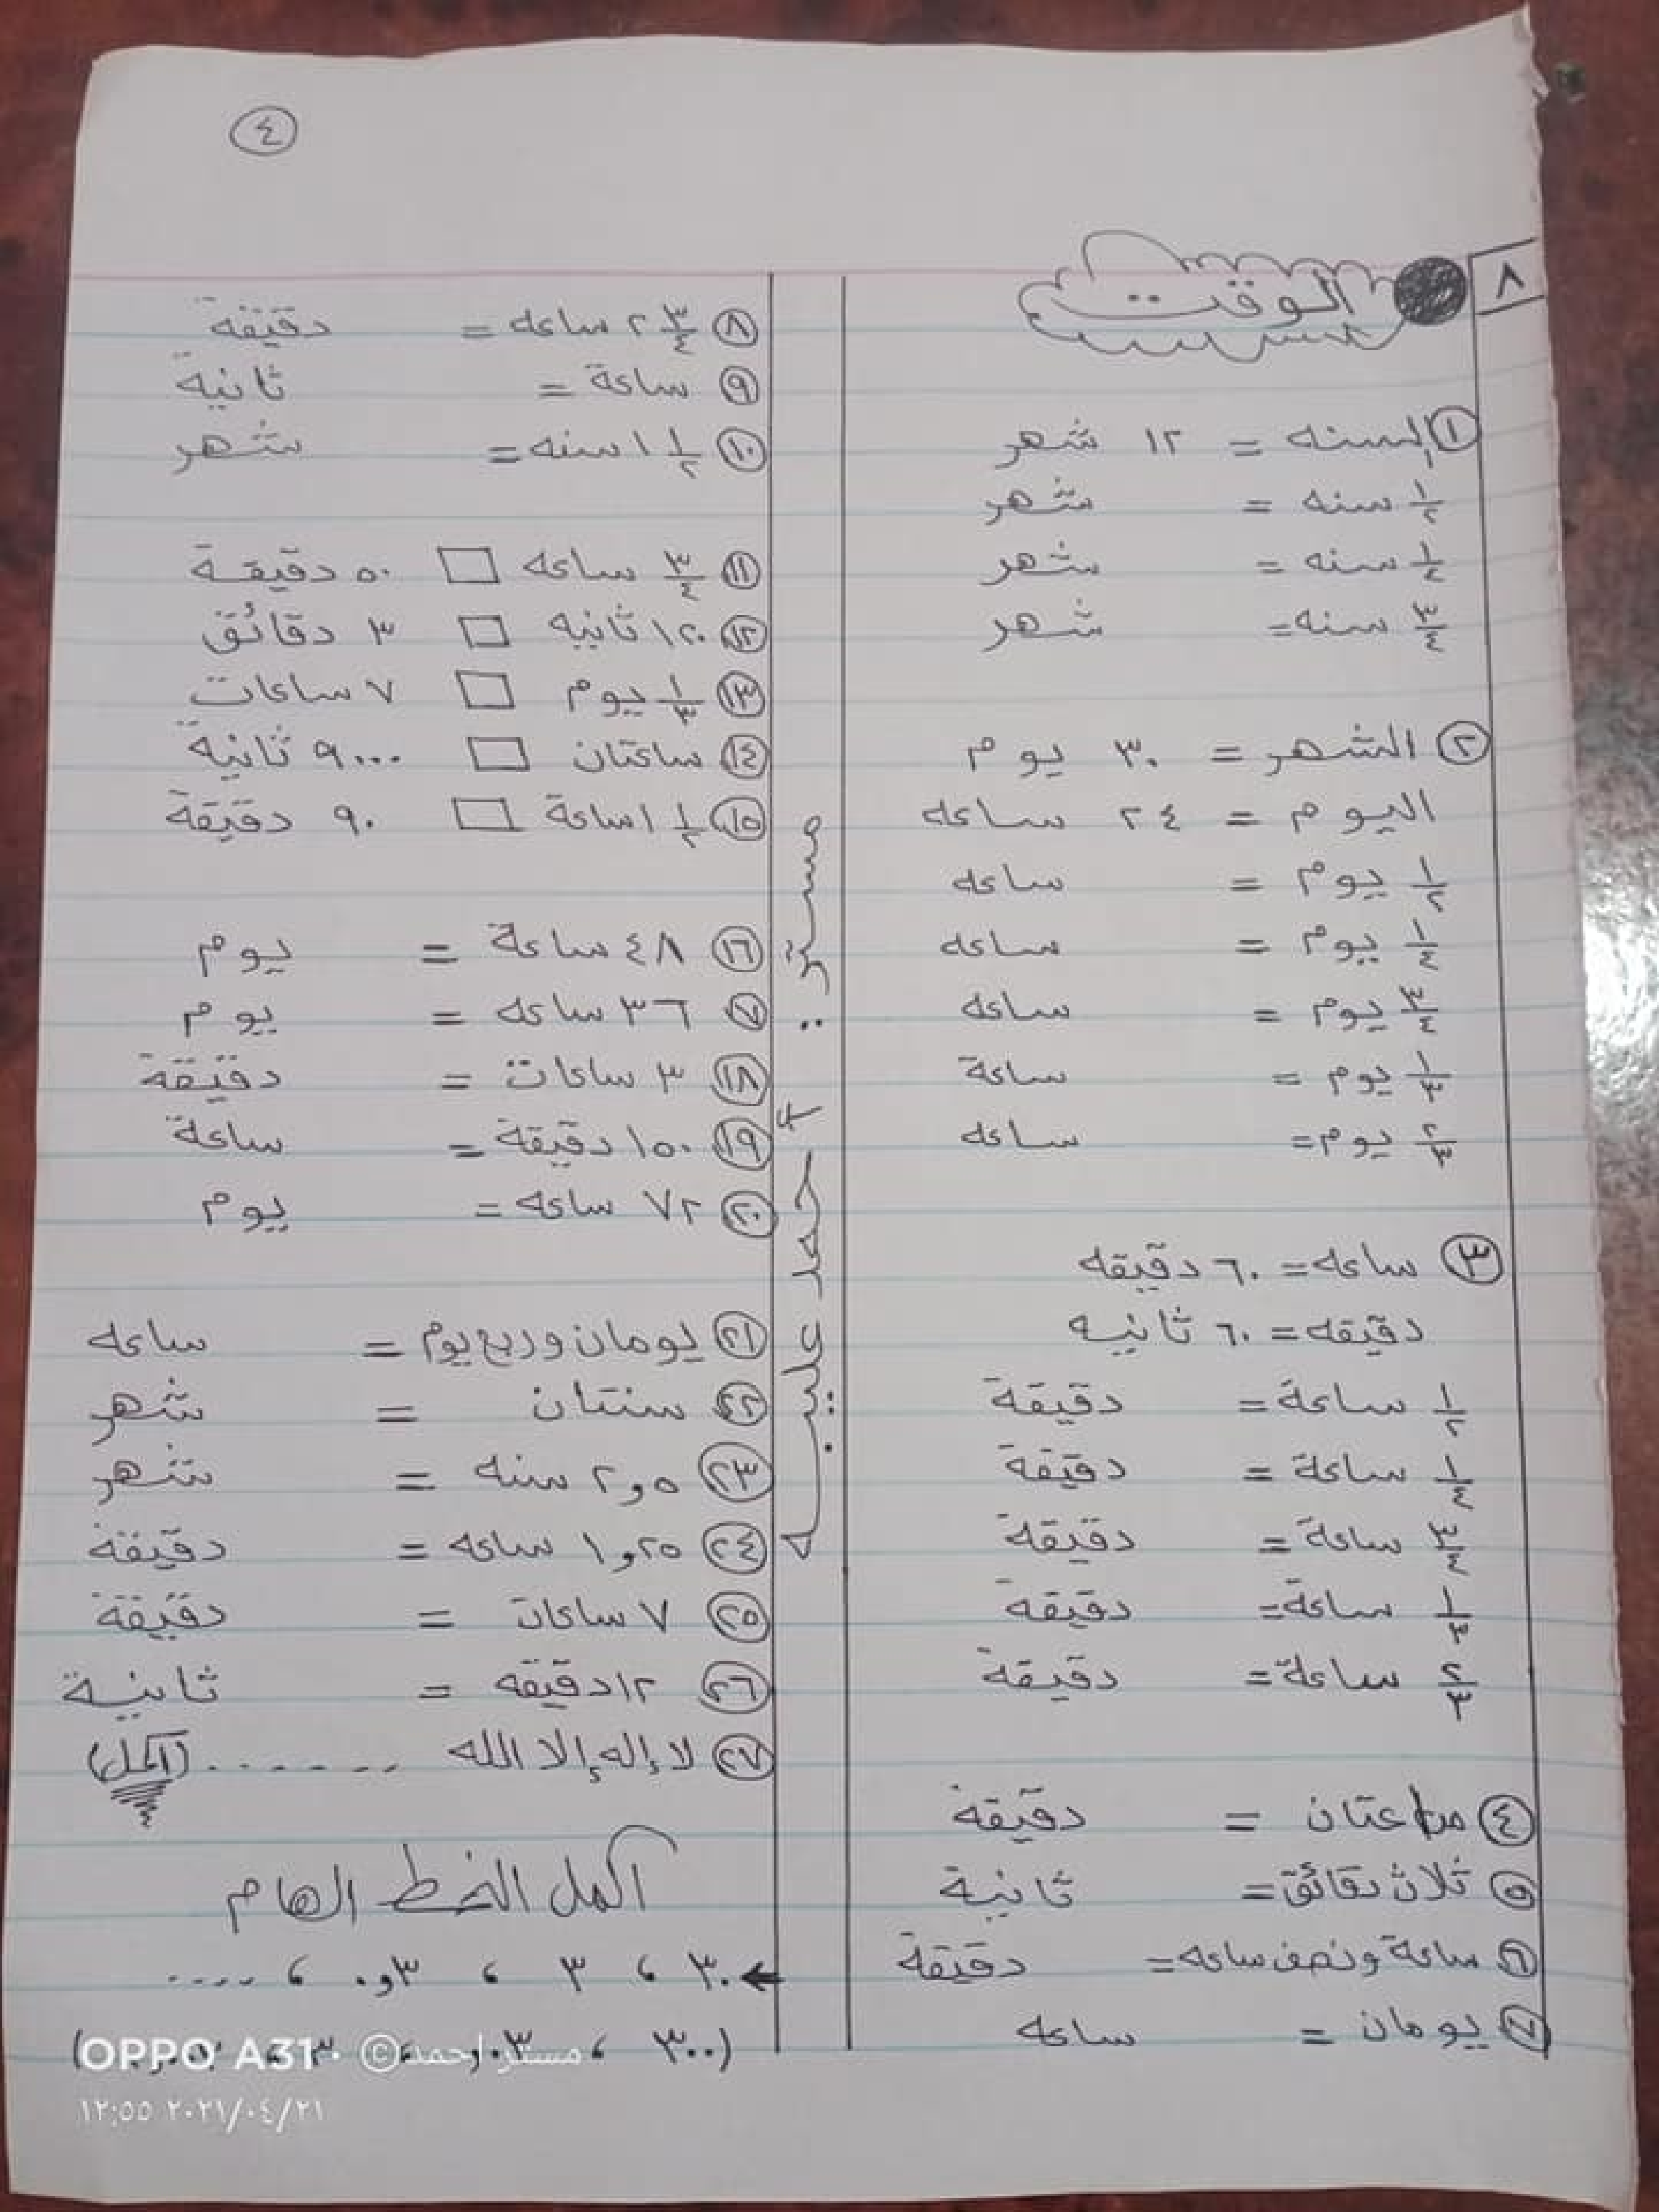 ٤
٨
الوقت
١ السنه = ١٢ شهر
١/٢ سنه = شهر
١/٤ سنه = شهر
٣/٤ سنه = شهر
٢ الشهر = ٣٠ يوم
اليوم = ٢٤ ساعه
١/٢ يوم = ساعه
١/٤ يوم = ساعه
٣/٤ يوم = ساعه
١/٣ يوم = ساعة
٢/٣ يوم = ساعه
٣ ساعه = ٦٠ دقيقه
دقيقه = ٦٠ ثانيه
١/٢ ساعة = دقيقة
١/٤ ساعة = دقيقة
٣/٤ ساعة = دقيقة
١/٣ ساعة = دقيقة
٢/٣ ساعة = دقيقة
٤ ساعتان = دقيقة
٥ ثلاث دقائق = ثانية
٦ ساعة ونصف ساعه = دقيقة
٧ يومان = ساعه
مستر : أحمد عليبه
٨ ٢ ٣/٤ ساعه = دقيقة
٩ ساعة = ثانية
١٠ ١ ١/٢ سنه = شهر
١١ ٣/٤ ساعه □ ٥٠ دقيقة
١٢ ١٢٠ ثانيه □ ٣ دقائق
١٣ ١/٣ يوم □ ٧ ساعات
١٤ ساعتان □ ٩٠٠٠ ثانية
١٥ ١ ١/٢ ساعة □ ٩٠ دقيقة
١٦ ٤٨ ساعة = يوم
١٧ ٣٦ ساعه = يوم
١٨ ٣ ساعات = دقيقة
١٩ ١٥٠ دقيقة = ساعة
٢٠ ٧٢ ساعه = يوم
٢١ يومان وربع يوم = ساعه
٢٢ سنتان = شهر
٢٣ ٢,٥ سنه = شهر
٢٤ ١,٢٥ ساعه = دقيقة
٢٥ ٧ ساعات = دقيقة
٢٦ ١٢ دقيقه = ثانية
٢٧ لا إله إلا الله ------ (اكمل)
اكمل النمط الهام
← ٣٠ ، ٣ ، ٠,٣ ، ....
(٣٠٠ ،
OPPO A31 © مستر احمد
٢٠٢١/٠٤/٢١ ١٢:٥٥